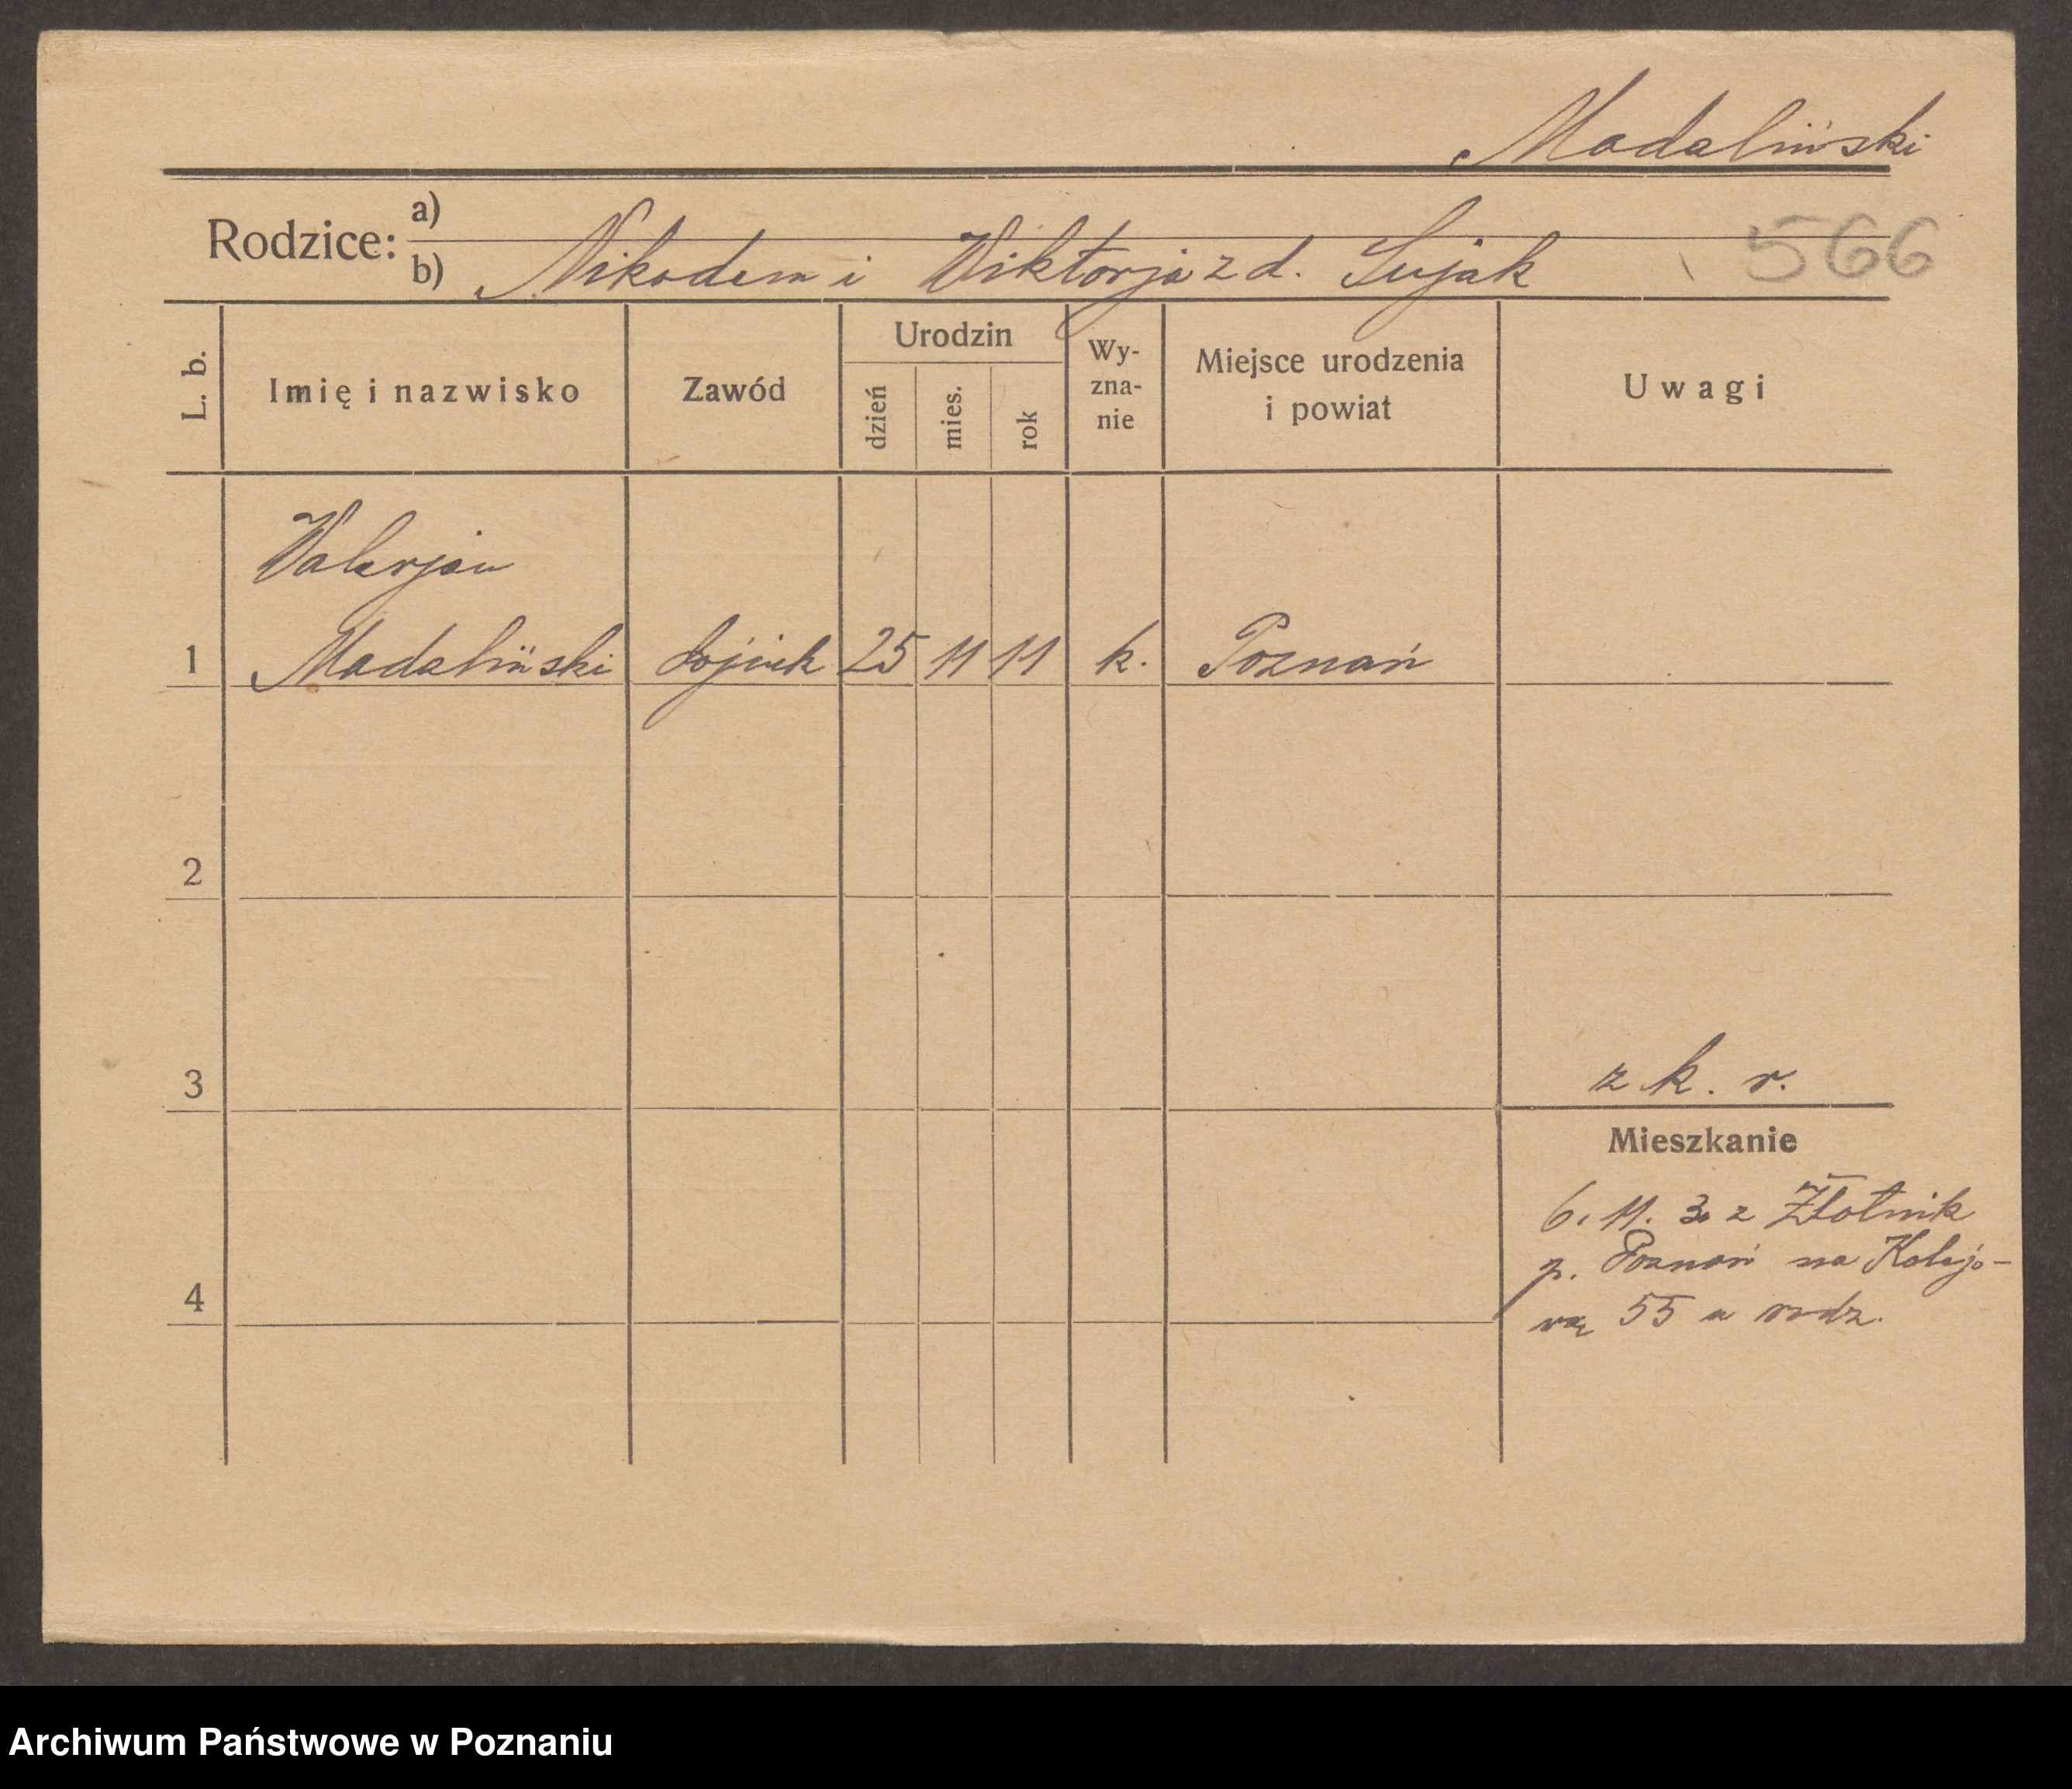 Madaliński
Rodzice: a)
b) Nikodem i Wiktorja z d. Sujak
566
L. b.
Imię i nazwisko
Zawód
Urodzin
dzień
mies.
rok
Wy-
zna-
nie
Miejsce urodzenia
i powiat
Uwagi
Walerjan
1 Madaliński 25 11 11 k. Poznań
2
3
z k. r.
Mieszkanie
6. 11. 30 z Złotnik
p. Poznań na Kolejo-
wą 55 u rodz.
4
Archiwum Państwowe w Poznaniu